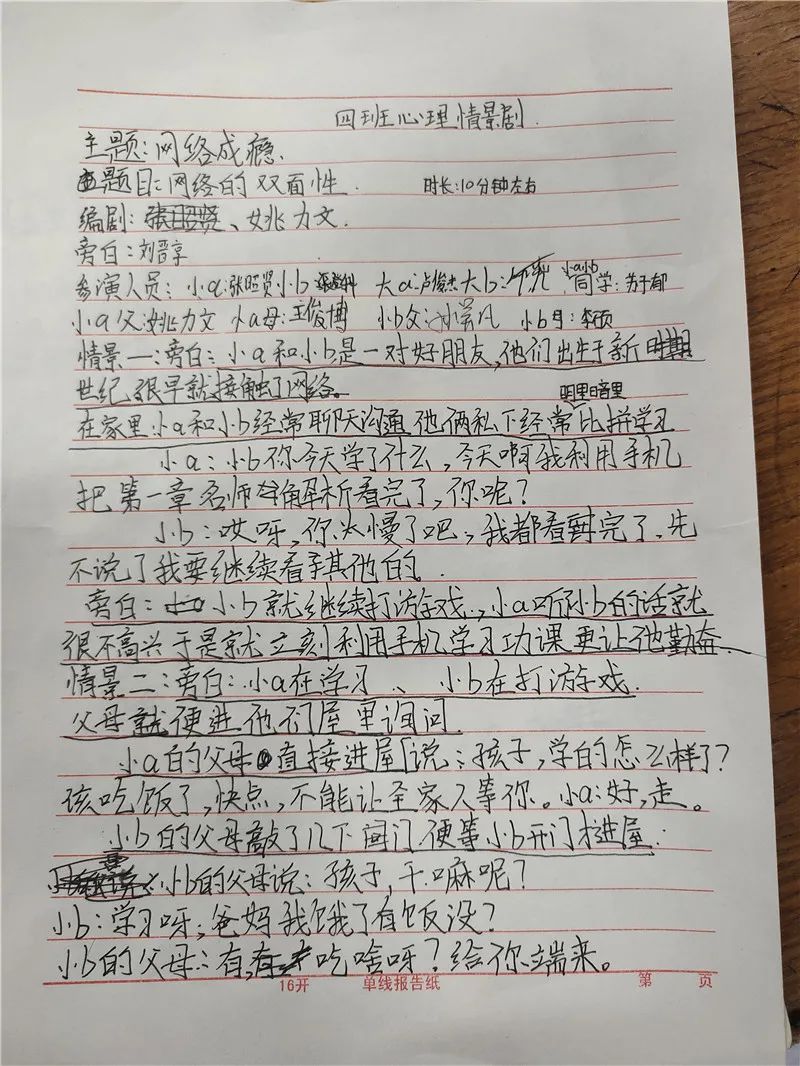 四班心理情景剧.
主题:网络成瘾.
题目:网络的双面性. 时长:10分钟左右
编剧:张昭贤、姚力文.
旁白:刘晋享
参演人员:小a:张昭贤小b 大a:卢俊杰大b: 小a小b同学:苏于郁
小a父:姚力文 小a母:王俊博 小b父: 小b母:李硕
情景一:旁白:小a和小b是一对好朋友,他们出生于新时期
世纪,很早就接触了网络。
在家里小a和小b经常聊天沟通他俩私下经常明里暗里比拼学习
小a:小b你今天学了什么,今天啊我利用手机
把第一章名师解析看完了,你呢?
小b:哎呀,你太慢了吧,我都看完了,先
不说了我要继续看其他的.
旁白:小b就继续打游戏.,小a听小b的话就
很不高兴于是就立刻利用手机学习功课更让他勤奋
情景二:旁白:小a在学习、小b在打游戏.
父母就便进他们屋里询问.
小a的父母直接进屋说:孩子,学的怎么样了?
该吃饭了,快点,不能让全家人等你。小a:好,走。
小b的父母敲了几下门便等小b开门才进屋.
小b的父母说:孩子,干嘛呢?
小b:学习呀,爸妈我饿了有饭没?
小b的父母:有,吃啥呀?给你端来。
16开 单线报告纸 第 页